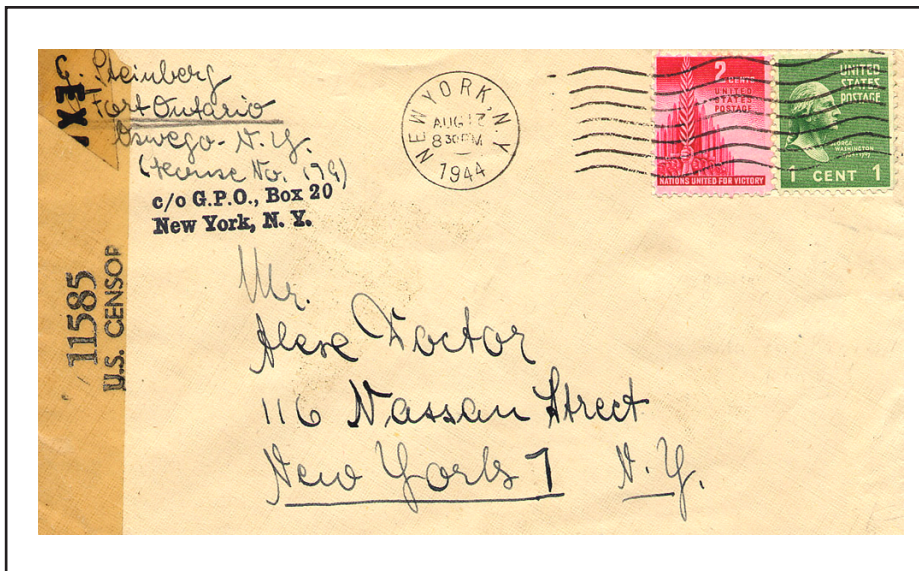 G. Steinberg
Fort Ontario
Oswego - N.Y.
(House No. 179)
c/o G.P.O., Box 20
New York, N. Y.
NEW YORK, N.Y.
AUG 17
830 PM
1944
2 CENTS
UNITED
STATES
POSTAGE
NATIONS UNITED FOR VICTORY
UNITED
STATES
POSTAGE
GEORGE
WASHINGTON
1 CENT 1
EX
11585
U.S. CENSOR
Mr.
Alexe Doctor
116 Nassau Street
New York 7 N.Y.